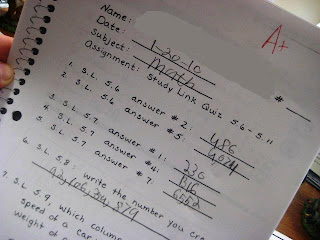 Name:
A+
Date: 1-20-10
Subject: Math
Assignment: Study Link Quiz 5.6 - 5.11 #
1. S.L. 5.6 answer # 2: 486
2. S.L. 5.6 answer # 5:
3. S.L. 5.7 answer # 1: 230
4. S.L. 5.7 answer # 4: 
5. S.L. 5.7 answer # 7:
6. S.L. 5.8: write the number you
7. S.L. 5.9, which
speed of a car
weight of a